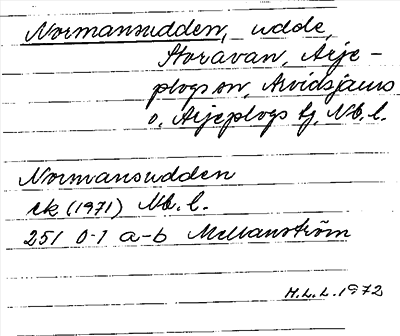 Normansudden, udde,
Storavan, Arje-
plogs sn, Arvidsjaurs
o. Arjeplogs tj, Nb. l.
Normansudden
ek (1971) Nb. l.
251 0-1 a-b Mellanström
H.L.L. 1972